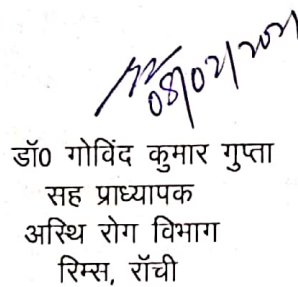 08/02/2021
डॉ0 गोविंद कुमार गुप्ता
सह प्राध्यापक
अस्थि रोग विभाग
रिम्स, रॉची